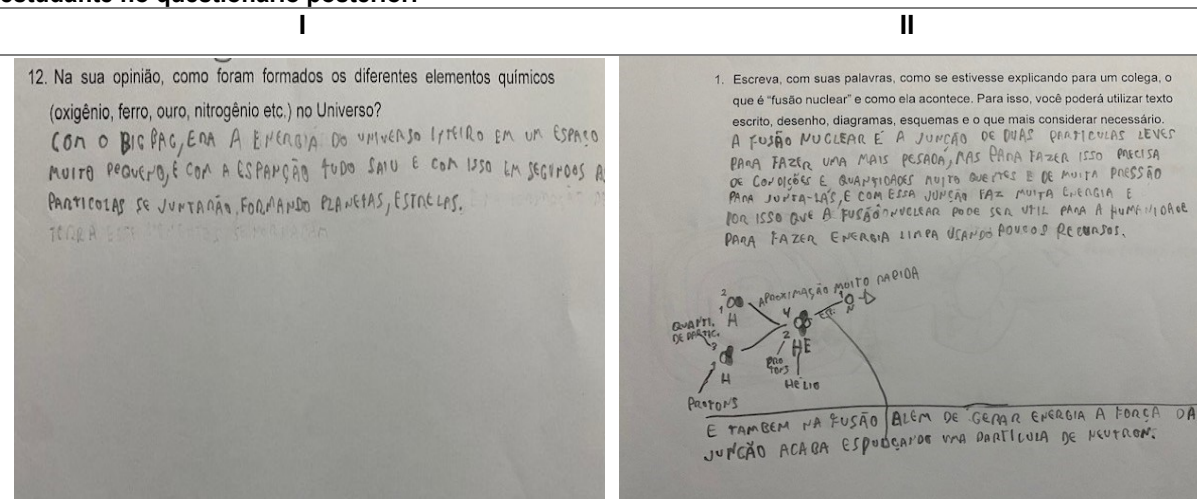 estudante no questionário posterior.
I
II
12. Na sua opinião, como foram formados os diferentes elementos químicos
(oxigênio, ferro, ouro, nitrogênio etc.) no Universo?
COM O BIG PAG, ERA A ENERGIA DO UNIVERSO INTEIRO EM UM ESPAÇO
MUITO PEQUENO, E COM A ESPANÇÃO TUDO SAIU E COM ISSO EM SEGUNDOS A
PARTICOLAS SE JUNTARÃO, FORMANDO PLANETAS, ESTRELAS.
1. Escreva, com suas palavras, como se estivesse explicando para um colega, o
que é “fusão nuclear” e como ela acontece. Para isso, você poderá utilizar texto
escrito, desenho, diagramas, esquemas e o que mais considerar necessário.
A FUSÃO NUCLEAR É A JUNÇÃO DE DUAS PARTICULAS LEVES
PARA FAZER UMA MAIS PESADA, MAS PARA FAZER ISSO PRECISA
DE CONDIÇÕES E QUANTIDADES MUITO QUENTES E DE MUITA PRESSÃO
PARA JUNTA-LAS, E COM ESSA JUNÇÃO FAZ MUITA ENERGIA E
POR ISSO QUE A FUSÃO NUCLEAR PODE SER UTIL PARA A HUMANIDADE
PARA FAZER ENERGIA LIMPA USANDO POUCOS RECURSOS.
APROXIMAÇÃO MUITO RAPIDA
2
1
H
QUANTI.
DE PARTIC.
3
1
H
PROTONS
4
2
HE
PRO
TONS
HELIO
1
N
E TAMBEM NA FUSÃO ALÉM DE GERAR ENERGIA A FORÇA DA
JUNÇÃO ACABA ESPUUÇANDO UMA PARTÍCULA DE NEUTRON.